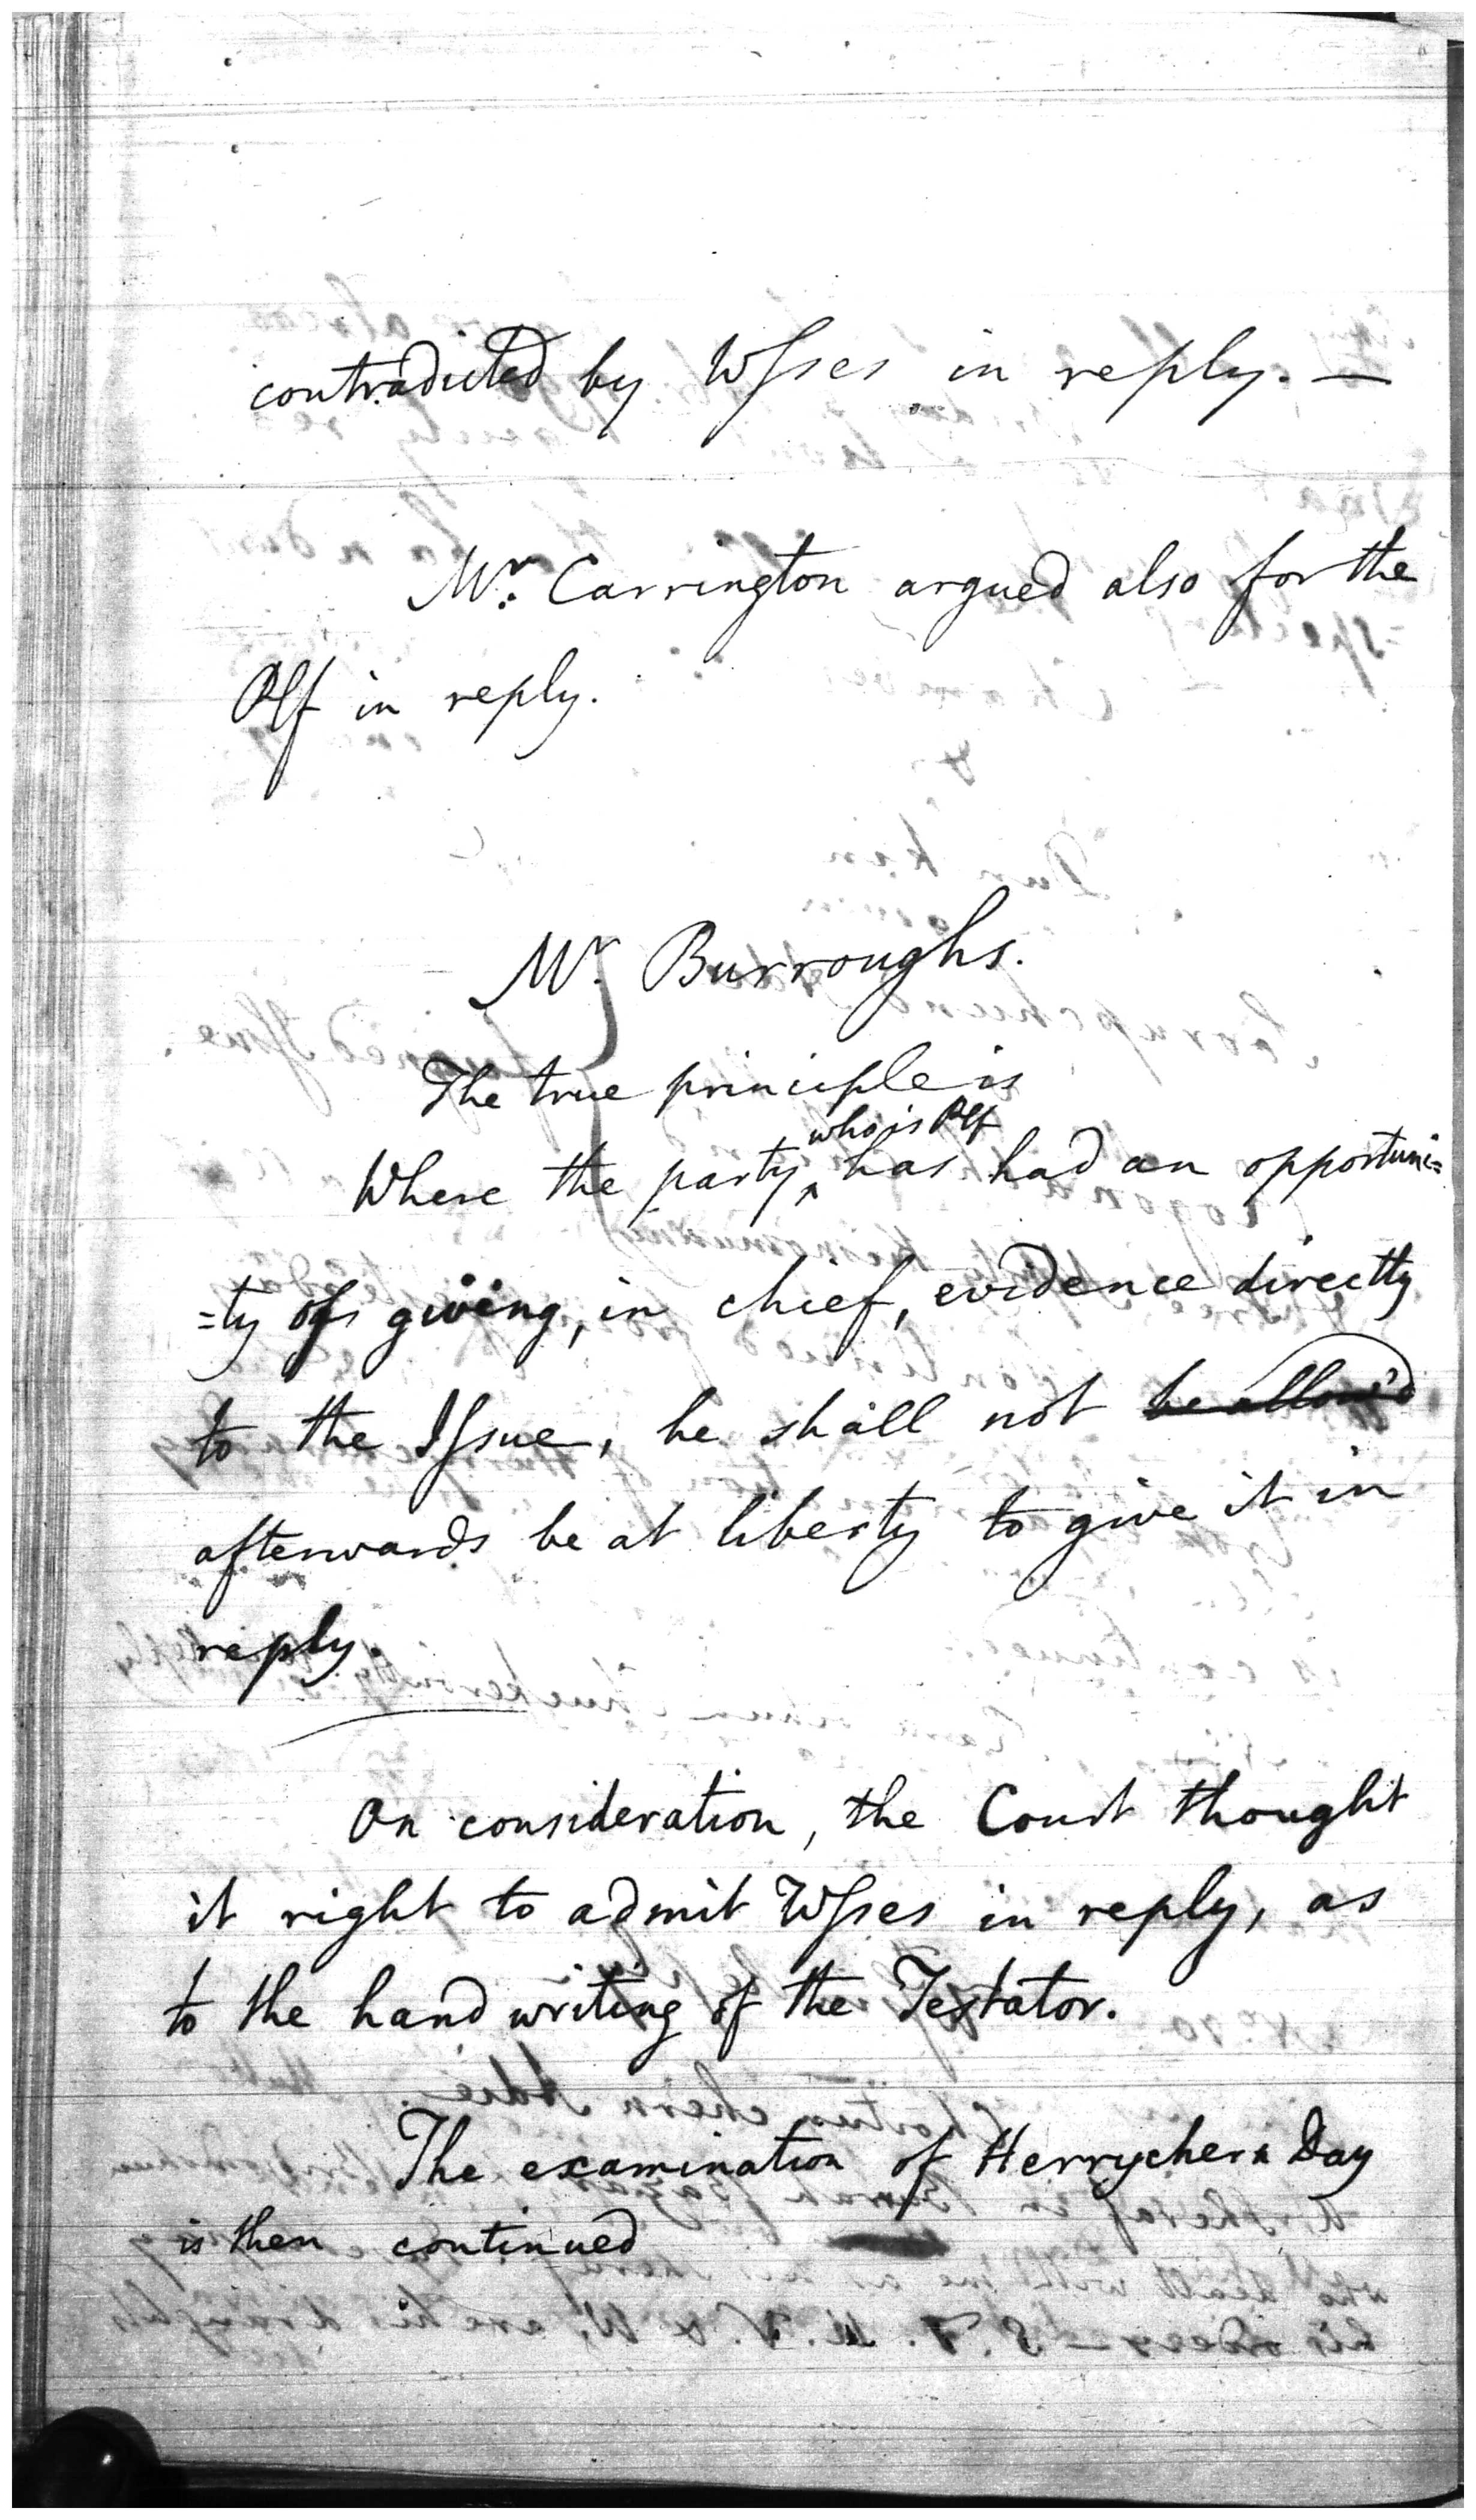 contradicted by Wſses in reply. —
Mr. Carrington argued also for the
Plf in reply.
Mr. Burroughs.
The true principle is
who is Plf
Where the party ‸ has had an opportuni=
=ty of giving, in chief, evidence directly
to the Iſsue, he shall not be allow'd
afterwards be at liberty to give it in
reply.
On consideration, the Court thought
it right to admit Wſses in reply, as
to the hand writing of the Testator.
The examination of Herrychern Day
is then continued